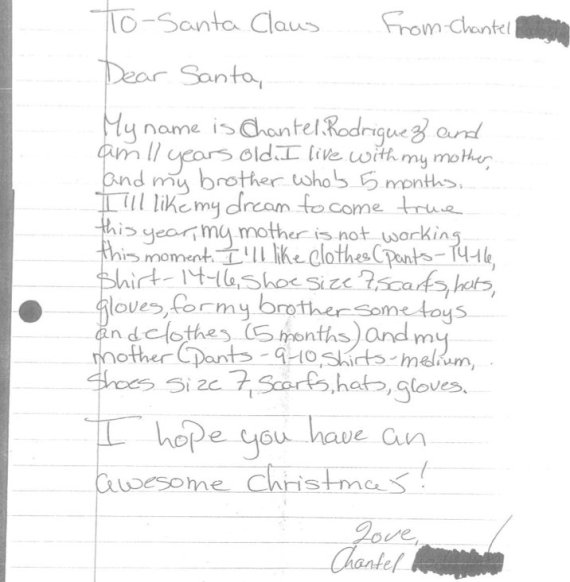 To-Santa Claus From-Chantel
Dear Santa,
My name is Chantel.Rodriguez and
am 11 years old. I live with my mother,
and my brother who's 5 months.
I'll like my dream to come true
this year, my mother is not working
this moment. I'll like clothes (pants-14-16,
shirt-14-16, shoe size 7, scarfs, hats,
gloves, for my brother some toys
and clothes (5 months) and my
mother (pants-9-10, shirts-medium,
shoes size 7, scarfs, hats, gloves.
I hope you have an
awesome christmas!
Love,
Chantel